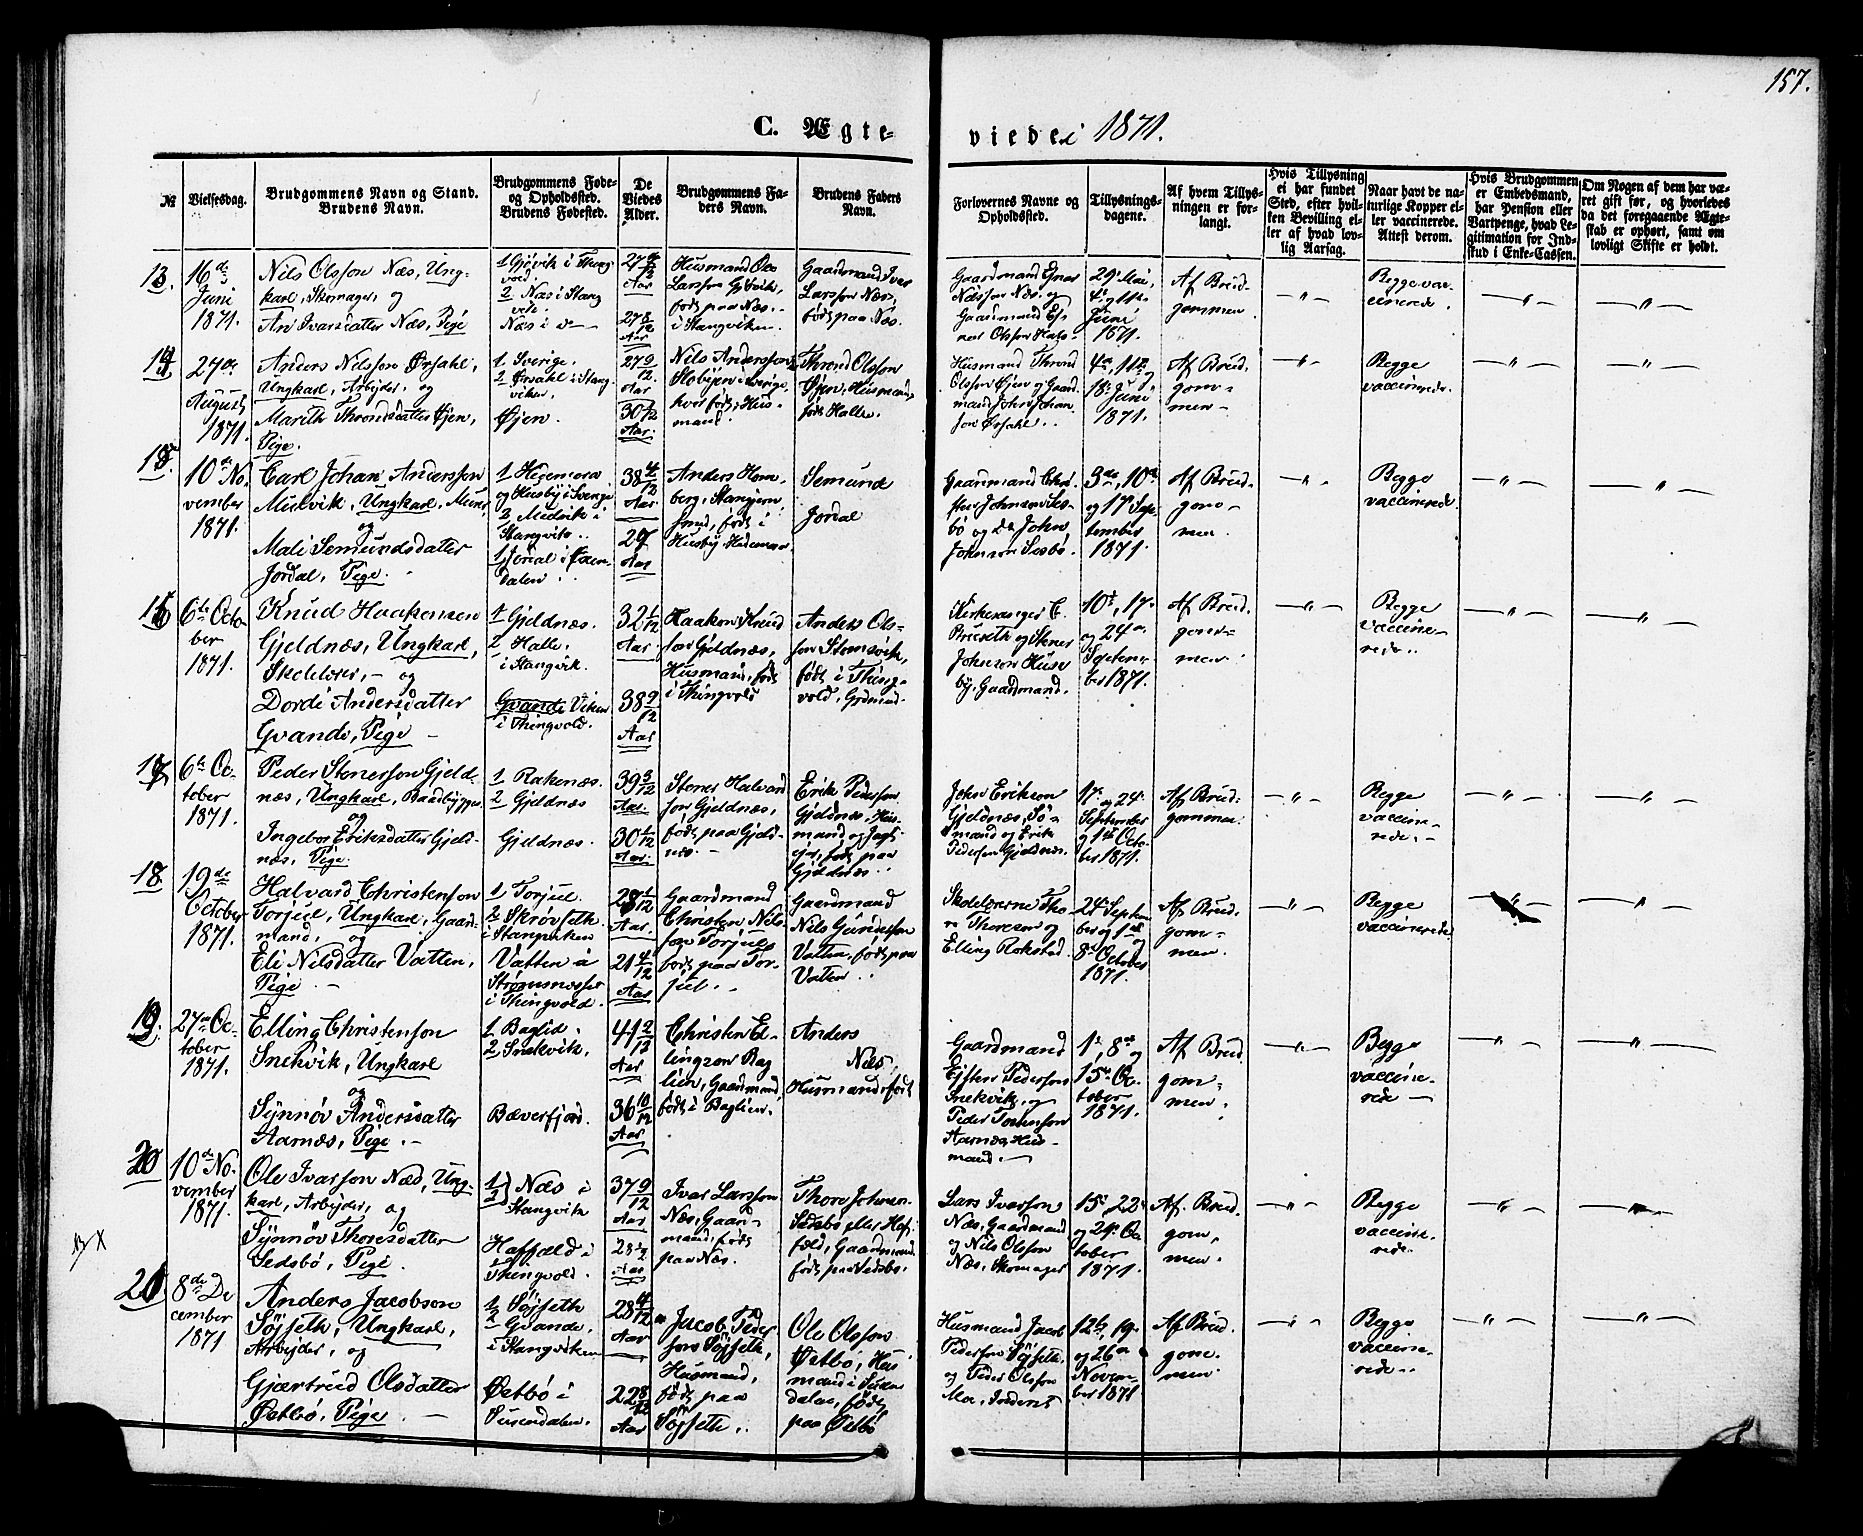 157.
C. Ægteviede i 1871.
№
Vielsesdag.
Brudgommens Navn og Stand.
Brudens Navn.
Brudgommens Føde-
og Opholdssted.
Brudens Fødested.
De
Viedes
Alder.
Brudgommens Fa-
ders Navn.
Brudens Faders
Navn.
Forlovernes Navne og
Opholdssted.
Tillysnings-
dagene.
Af hvem Tillys-
ningen er for-
langt.
Hvis Tillysning
ei har fundet
Sted, efter hvil-
ken Bevilling el-
ler af hvad lov-
lig Aarsag.
Naar havt de na-
turlige Kopper el-
ler vaccinerede.
Attest derom.
Hvis Brudgommen
er Embedsmand,
har Pension eller
Vartpenge, hvad Le-
gitimation for Ind-
skud i Enke-Cassen.
Om Nogen af dem har væ-
ret gift før, og hvorledes
da det foregaaende Ægte-
skab er ophørt, samt om
lovligt Skifte er holdt.
13.
16de
Juni
1871.
Nils Olsson Næs, Ung-
karl, Skomager, og
An Ivarsdatter Næs, Pige
1 Gjøvik i Stang
2 Næs i Stang
Næs i
27
Aar
27 8/12
Aar
Husmand Ole
Larsson Gjøvik,
født paa Næs
i Stangviken.
Gaardmand Ivar
Larsson Næs,
født paa Næs.
Gaardmand
Nilsson Næs og
Gaardmand
Olsson
29 Mai,
4 og 11
Juni
1871
Af Brud-
gommen
Begge vac-
cinerede.
14
27de
August
1871.
Anders Nilsson Ørsahl,
Ungkarl, Arbejder, og
Marith Throndsdatter Øjen,
Pige.
1. Sverige.
2 Ørsahl i Stang-
viken.
Øjen.
27 9/12
Aar
30
Aar.
Nils Andersson
i Sverige,
hvor født, Hus-
mand.
Thrond Olsson
Øjen, Husmand,
født Halle.
Husmand Thrond
Olsson Øjen og Gaard-
mand John Johan-
son Ørsahl.
4de, 11te og
18 Juni
1871.
Af Brud-
gom-
men
Begge
vaccinerede.
15.
10de No-
vember
1871.
Carl Johan Andersson
Mulvik, Ungkarl, Murer,
og
Mali Semundsdatter
Jordal, Pige.
1 Hedemora
og Husby i Sverige
2 Mulvik i
Stangvik.
Jordal i
dalen
38 4/12
Aar
27
Aar
Anders Hom-
berg, Stangjern
smed, født i
Husby, Hedemora
Semund
Jordal
Gaardmand Chri-
sten Johnsen Sæs-
bø og Do John
Johnson Sæsbø.
3de, 10de
og 17 Sep-
tember
1871.
Af Brud-
gom-
men.
Begge
vaccinerede
16
6te Octo-
ber
1871.
Knud Haakensen
Gjeldnæs, Ungkarl,
Skolelærer, og
Dordi Andersdatter
Gvande, Pige
1 Gjeldnæs.
2 Halle,
i Stangvik.
Gvande Viken
i Thingvold.
32 1/12
Aar
38 9/12
Aar
Haakon Knud
son Gjeldnæs,
Husmand, født
i Thingvold
Anders Ols-
son Stomsvik,
født i Thing-
vold, Grdmand.
Kirkesanger E.
og Stener
Johnson Huse
by, Gaardmand.
10de, 17
og 24de
Septem-
ber 1871.
Af Brud-
gom-
men
Begge
vaccine-
rede.
17
6te Oc-
tober
1871.
Peder Stenersson Gjeld-
næs, Ungkarl, Baadbygger
og
Ingebor Eriksdatter Gjeld-
næs, Pige.
1 Rakenæs.
2 Gjeldnæs
Gjeldnæs.
39 5/12
Aar.
30 1/12
Aar.
Stener Halvard
son Gjeldnæs,
født paa Gjeld-
næs.
Erik Pederson
Gjeldnæs, Hus-
mand og
født paa
Gjeldnæs.
John Erikson
Gjeldnæs, Sø-
mand og Erik
Pedersen Gjeldnæs.
17 og 24
September
og 1ste Octo-
ber 1871.
Af Brud-
gommen
Begge
vaccine-
rede.
18.
19de
October
1871.
Halvard Christenson
Torjul, Ungkarl, Gaard-
mand, og
Eli Nilsdatter Vatten,
Pige
1 Torjul.
2 Skrøvseth
i Stangviken
Vatten i
Strømsnæsset
i Thingvold.
28 1/12
Aar.
21 4/12
Aar
Gaardmand
Christen Nils
son Torjul
født paa Tor-
jul.
Gaardmand
Nils Gunderson
Vatten, født paa
Vatten
Skolelærerne Tho-
re Thoreson og
Elling Rokstad.
24 Septem-
ber og 1ste og
8de October
1871.
Af Brud-
gom-
men.
Begge
vaccinerede.
19.
27de Oc-
tober
1871.
Elling Christenson
Snekvik, Ungkarl
og
Synnøv Andersdatter
Aarnæs, Pige.
1 Baglid.
2 Snekvik.
Bæverfjord.
41
Aar
36 10/12
Aar
Christen El-
lingson Bag
lien, Gaardmand,
født i Baglien.
Anders
Næs,
Husmand, født
Gaardmand
Pederson
Snekvik, og
Peder
Aarnæs, Hus-
mand.
1, 8de og
15de Oc-
tober
1871.
Af Brud
gom-
men.
Begge
vaccine-
rede
20
10de No-
vember
1871.
Ole Ivarson Næs, Ung-
karl, Arbejder, og
Synnøv Thoresdatter
Sedsbø, Pige.
1
2 Næs i
Stangvik
Halfjæld i
Thingvold.
37 9/12
Aar
28
Aar
Ivar Larsson
Næs, Gaard-
mand, født
paa Næs.
Thore Johnsen
Sedsbø eller
Gaardmand
født paa Sedsbø.
Lars Ivarson
Næs, Gaardmand
og Nils Olsson
Næs, Skomager
15, 22
og 29 Oc-
tober
1871.
Af Brud-
gom-
men.
Begge
vaccine-
rede.
21.
8de De-
cember
1871
Anders Jacobson
Søjseth, Ungkarl,
Arbejder, og
Gjærtrud Olsdatter
Østbø, Pige.
1 Søjseth
2 Gvande,
i Stangviken
Østbø i
Surendalen.
28 4/12
Aar
22 8/12
Aar
Jacob Peder
son Søjseth,
Husmand,
født paa
Søjseth.
Ole Olsson
Østbø, Hus-
mand i Suren
dalen, født
paa Østbø
Husmand Jacob
Pederson Søjseth
og Peder Olsson
Moe,
12te, 19
og 26de
Novem-
ber 1871
Af Brud-
gom-
men
Begge
vaccine-
rede.